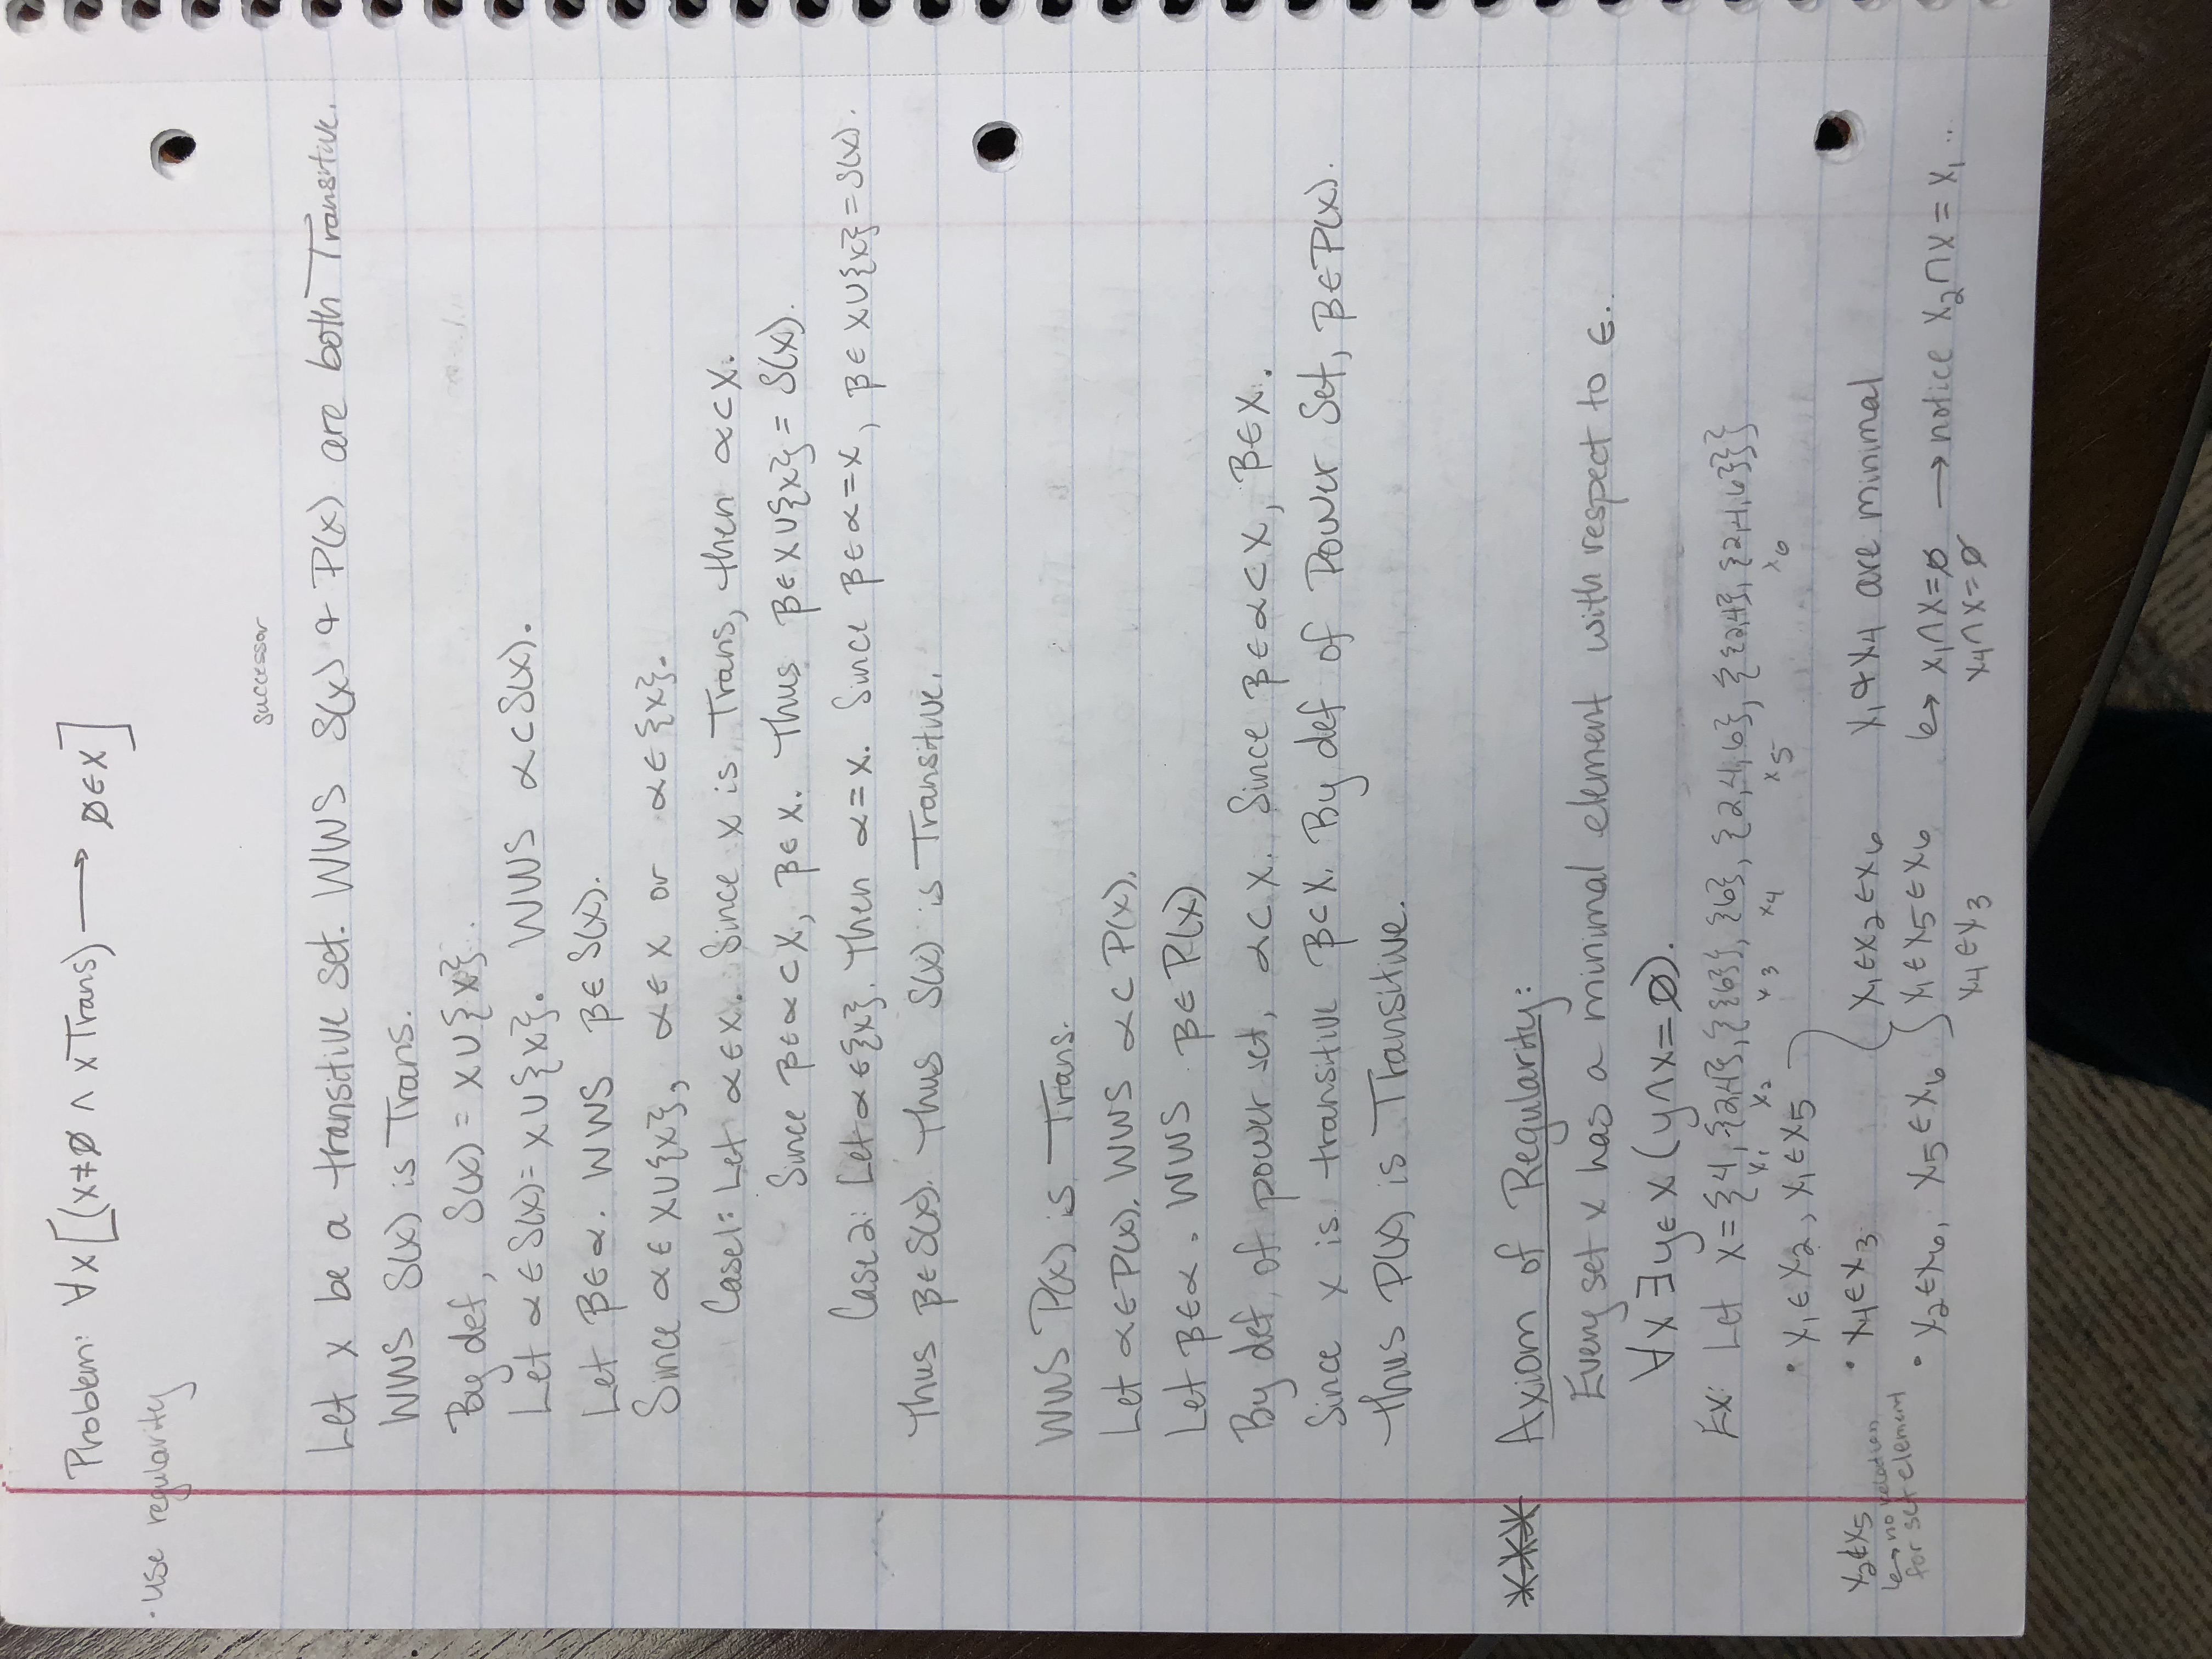 Problem: ∀x[(x≠∅ ∧ x Trans) ⟶ ∅∈x]
· use regularity
successor
Let x be a transitive set. WWS S(x) & P(x) are both Transitive.
WWS S(x) is Trans.
By def, S(x) = x∪{x}.
Let α∈S(x)= x∪{x}. WWS α⊂S(x).
Let β∈α. WWS β∈S(x).
Since α∈x∪{x}, α∈x or α∈{x}.
Case1: Let α∈x. Since x is Trans, then α⊂x.
Since β∈α⊂x, β∈x. Thus β∈x∪{x}= S(x).
Case 2: Let α∈{x}. Then α=x. Since β∈α=x, β∈x∪{x}=S(x).
Thus β∈S(x). Thus S(x) is Transitive.
WWS P(x) is Trans.
Let α∈P(x). WWS α⊂P(x).
Let β∈α. WWS β∈P(x)
By def of power set, α⊂x. Since β∈α⊂x, β∈x.
Since x is transitive β⊂x. By def of Power Set, β∈P(x).
Thus P(x) is Transitive.
*** Axiom of Regularity:
Every set x has a minimal element with respect to ∈.
∀x ∃y∈x (y∩x=∅).
Ex: Let x={4, {2,4}, {{6}}, {6}, {2,4,6}, {{2,4}, {2,4,6}}}
x₁ x₂ x₃ x₄ x₅ x₆
· x₁∈x₂, x₁∈x₅
x₂∉x₅
↳ no relation
for set element
· x₄∈x₃ x₁∈x₂∈x₆ x₁ & x₄ are minimal
· x₂∈x₆, x₅∈x₆ x₁∈x₅∈x₆ ↳ x₁∩x=∅ → notice x₂∩x = x₁ ...
x₄∈x₃ x₄∩x=∅